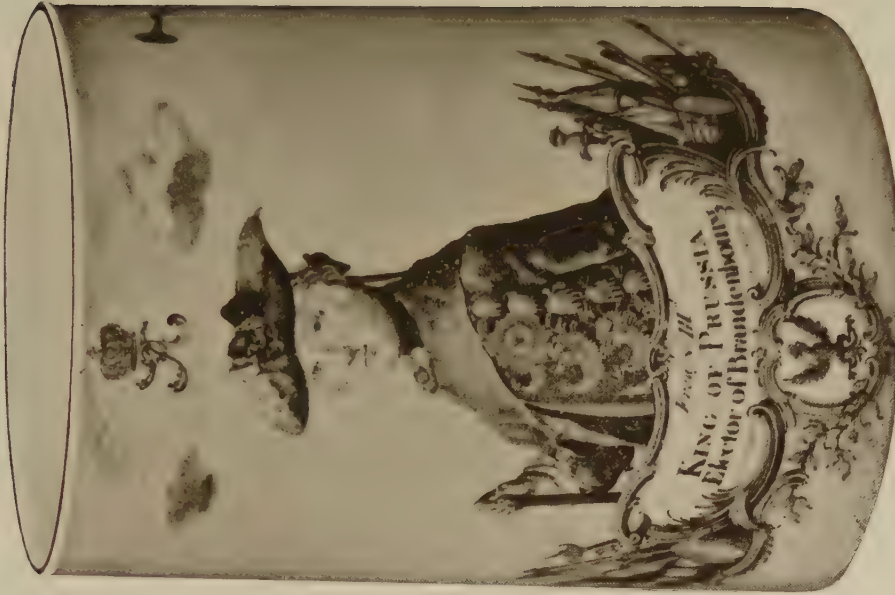 III
KING OF PRUSSIA
Elector of Brandenbourg